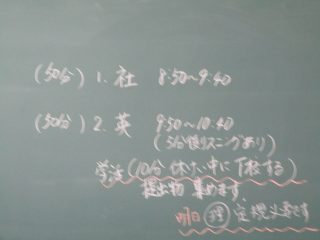 (50分) 1. 社 8:50~9:40
(50分) 2. 英 9:50~10:40
(5分後リスニングあり)
学活(10分休け中に下校する)
提出物 集めます.
明日 理 定規必要です